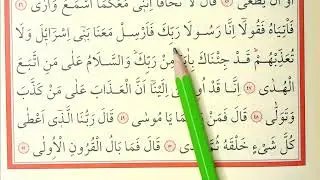 اَوْ اَنْ يَطْغٰى ﴿٤٥﴾ قَالَ لَا تَخَافَٓا اِنَّن۪ي مَعَكُمَٓا اَسْمَعُ وَاَرٰى ﴿٤٦﴾
فَأْتِيَاهُ فَقُولَٓا اِنَّا رَسُولَا رَبِّكَ فَاَرْسِلْ مَعَنَا بَن۪ٓي اِسْرَٓائ۪لَ وَلَا
تُعَذِّبْهُمْ قَدْ جِئْنَاكَ مِنْ رَبِّكَ وَالسَّلَامُ عَلٰى مَنِ اتَّبَعَ
الْهُدٰى ﴿٤٧﴾ اِنَّا قَدْ اِلَيْنَٓا اَنَّ الْعَذَابَ عَلٰى مَنْ كَذَّبَ
وَتَوَلّٰى ﴿٤٨﴾ قَالَ فَمَنْ يَا مُوسٰى ﴿٤٩﴾ قَالَ رَبُّنَا الَّذ۪ٓي اَعْطٰى
كُلَّ شَيْءٍ خَلْقَهُ ثُمَّ ﴿٥٠﴾ قَالَ فَمَا بَالُ الْقُرُونِ الْاُو۫لٰى ﴿٥١﴾